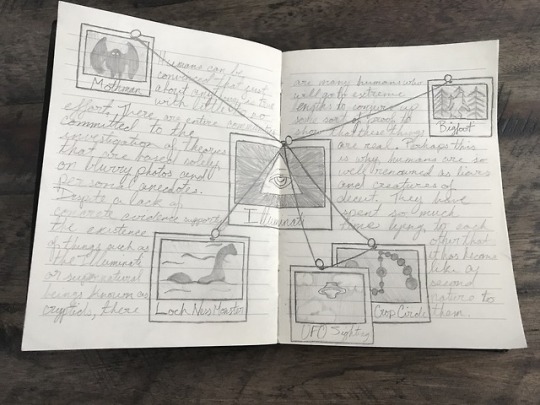 Mothman
Humans can be
convinced that just
about anything is true
with little to no
effort. There are entire communities
committed to the
investigation of theories
that are based solely
on blurry photos and
personal anecdotes.
Depite a lack of
concrete evidence supporting
the existence
of things such as
the Illuminati
or supernatural
beings known as
cryptids, there
Loch Ness Monster
Illuminati
are many humans who
will go to extreme
lengths to conjure up
some sort of proof to
show that these things
are real. Perhaps this
is why humans are so
well renowned as liars
and creatures of
deceit. They have
spent so much
time lying to each
other that
it has become
like a
second
nature to
them.
Bigfoot
UFO Sighting
Crop Circle